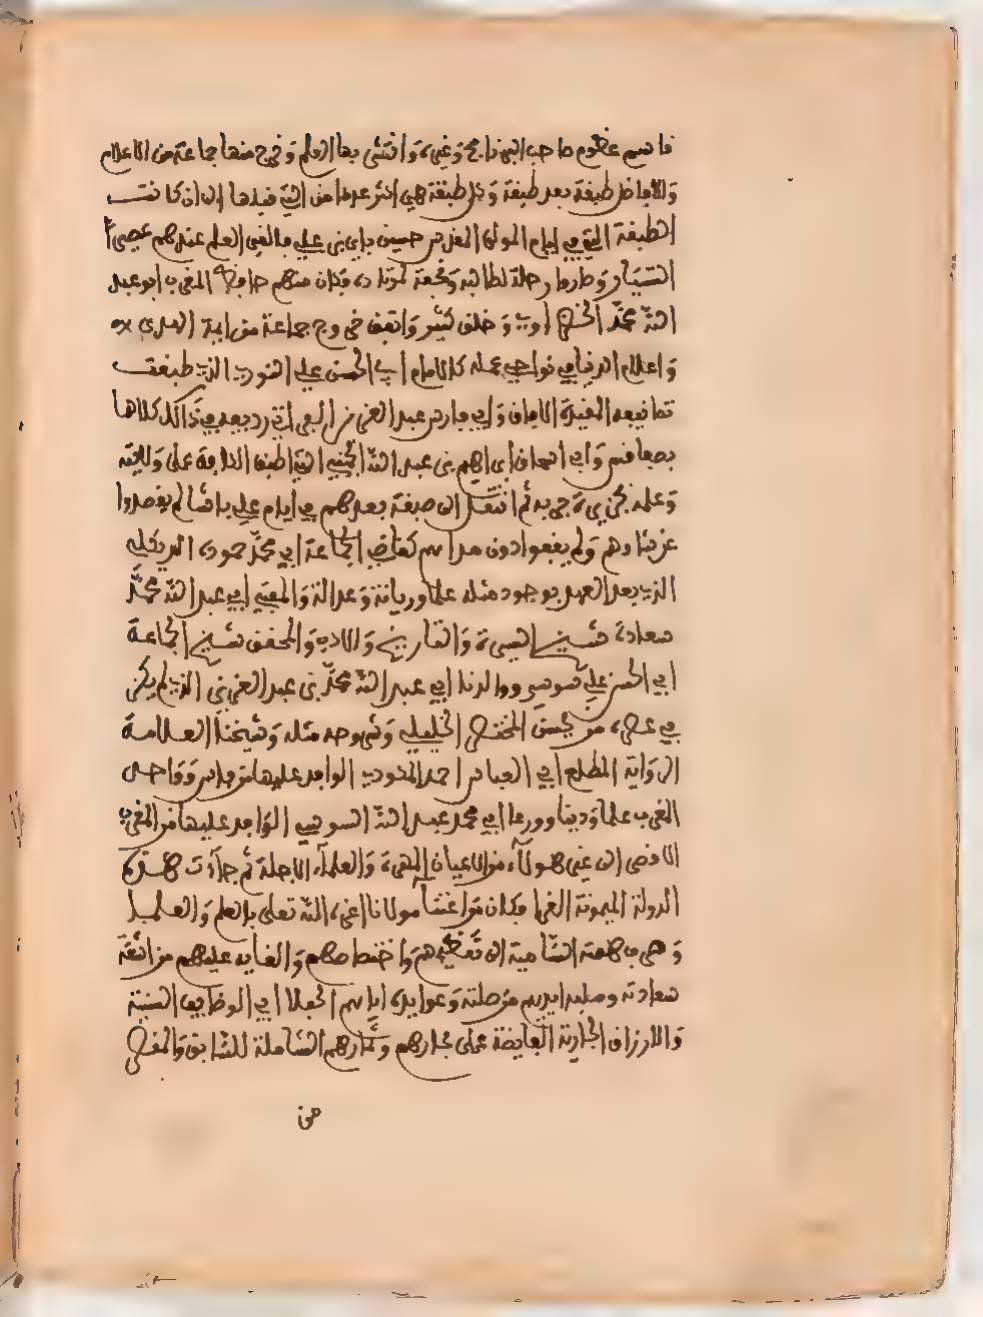 قاسم عظوم صاحب البرنامج وغيره وانتشى بها العلم وخرج منها جماعة من الاعلام
والافاضل طبقة بعد طبقة وكل طبقة هي اكثر عددا من التي قبلها الى ان كانت
الطبقة التي في ايام المولى المقدس حسين باي بن علي فالفى العلم عندهم عصى
التسيار وصاروا رحلة لطالبه ونجعة لمرتاده فكان منهم حافظ المغرب ابو عبد
الله محمد الخضراوي وخلق كثير واتفق خروج جماعة من ايمة الهدى
واعلام الدنيا في نواحي عمله كالامام ابي الحسن علي النوري الذي طبقت
تصانيفه المفيدة الافاق وابي فارس عبد العزيز الفراتي رديفه في ذالك كلاهما
بصفاقس وابي اسحاق ابراهيم بن عبد الله الجمني التي اطبق الكافة على ولايته
وعلمه بجزيرة جربة ثم انتقل الى صبغة بعدهم في ايام علي باشا لم يقصروا
عن شاوهم ولم يقعوا دون مداهم كقاضي الجماعة ابي محمد حمودة الريكلي
الذي بعد العهد بوجود مثله علما وديانة وعدالة والمفتي ابي عبد الله محمد
سعادة شيخ السيرة والتاريخ والادب والمحقق شيخ الجماعة
ابي الحسن علي سويسي ووالدنا ابي عبد الله محمد بن عبد العزيز الذي لم يكن
في عصره من يحسن المختصر الخليلي وشروحه مثله وشيخنا العلامة
الراوية المطلع ابي العباس احمد المكودي الوافد عليها من فاس وواحد
الغرب علما ودينا وورعا ابي محمد عبد الله السوسي الوافد عليها من المغرب
الاقصى الى غير هولاء من الاعيان المهرة والعلماء الاجلة ثم جاءت هذه
الدولة الميمونة الغرا فكان من اعتناء مولانا اعزه الله تعلى بالعلم والعلما
وصرف همته السامية الى تعظيمهم واختصاصهم والفايه عليهم من اشعة
سعادته وصلب ايديهم من صلته وعوايده اياهم الجعلا ابي الوظايف السنية
والارزاق الجارية الفايضة على كبارهم وصغارهم الشاملة للسابق والمقصر
من